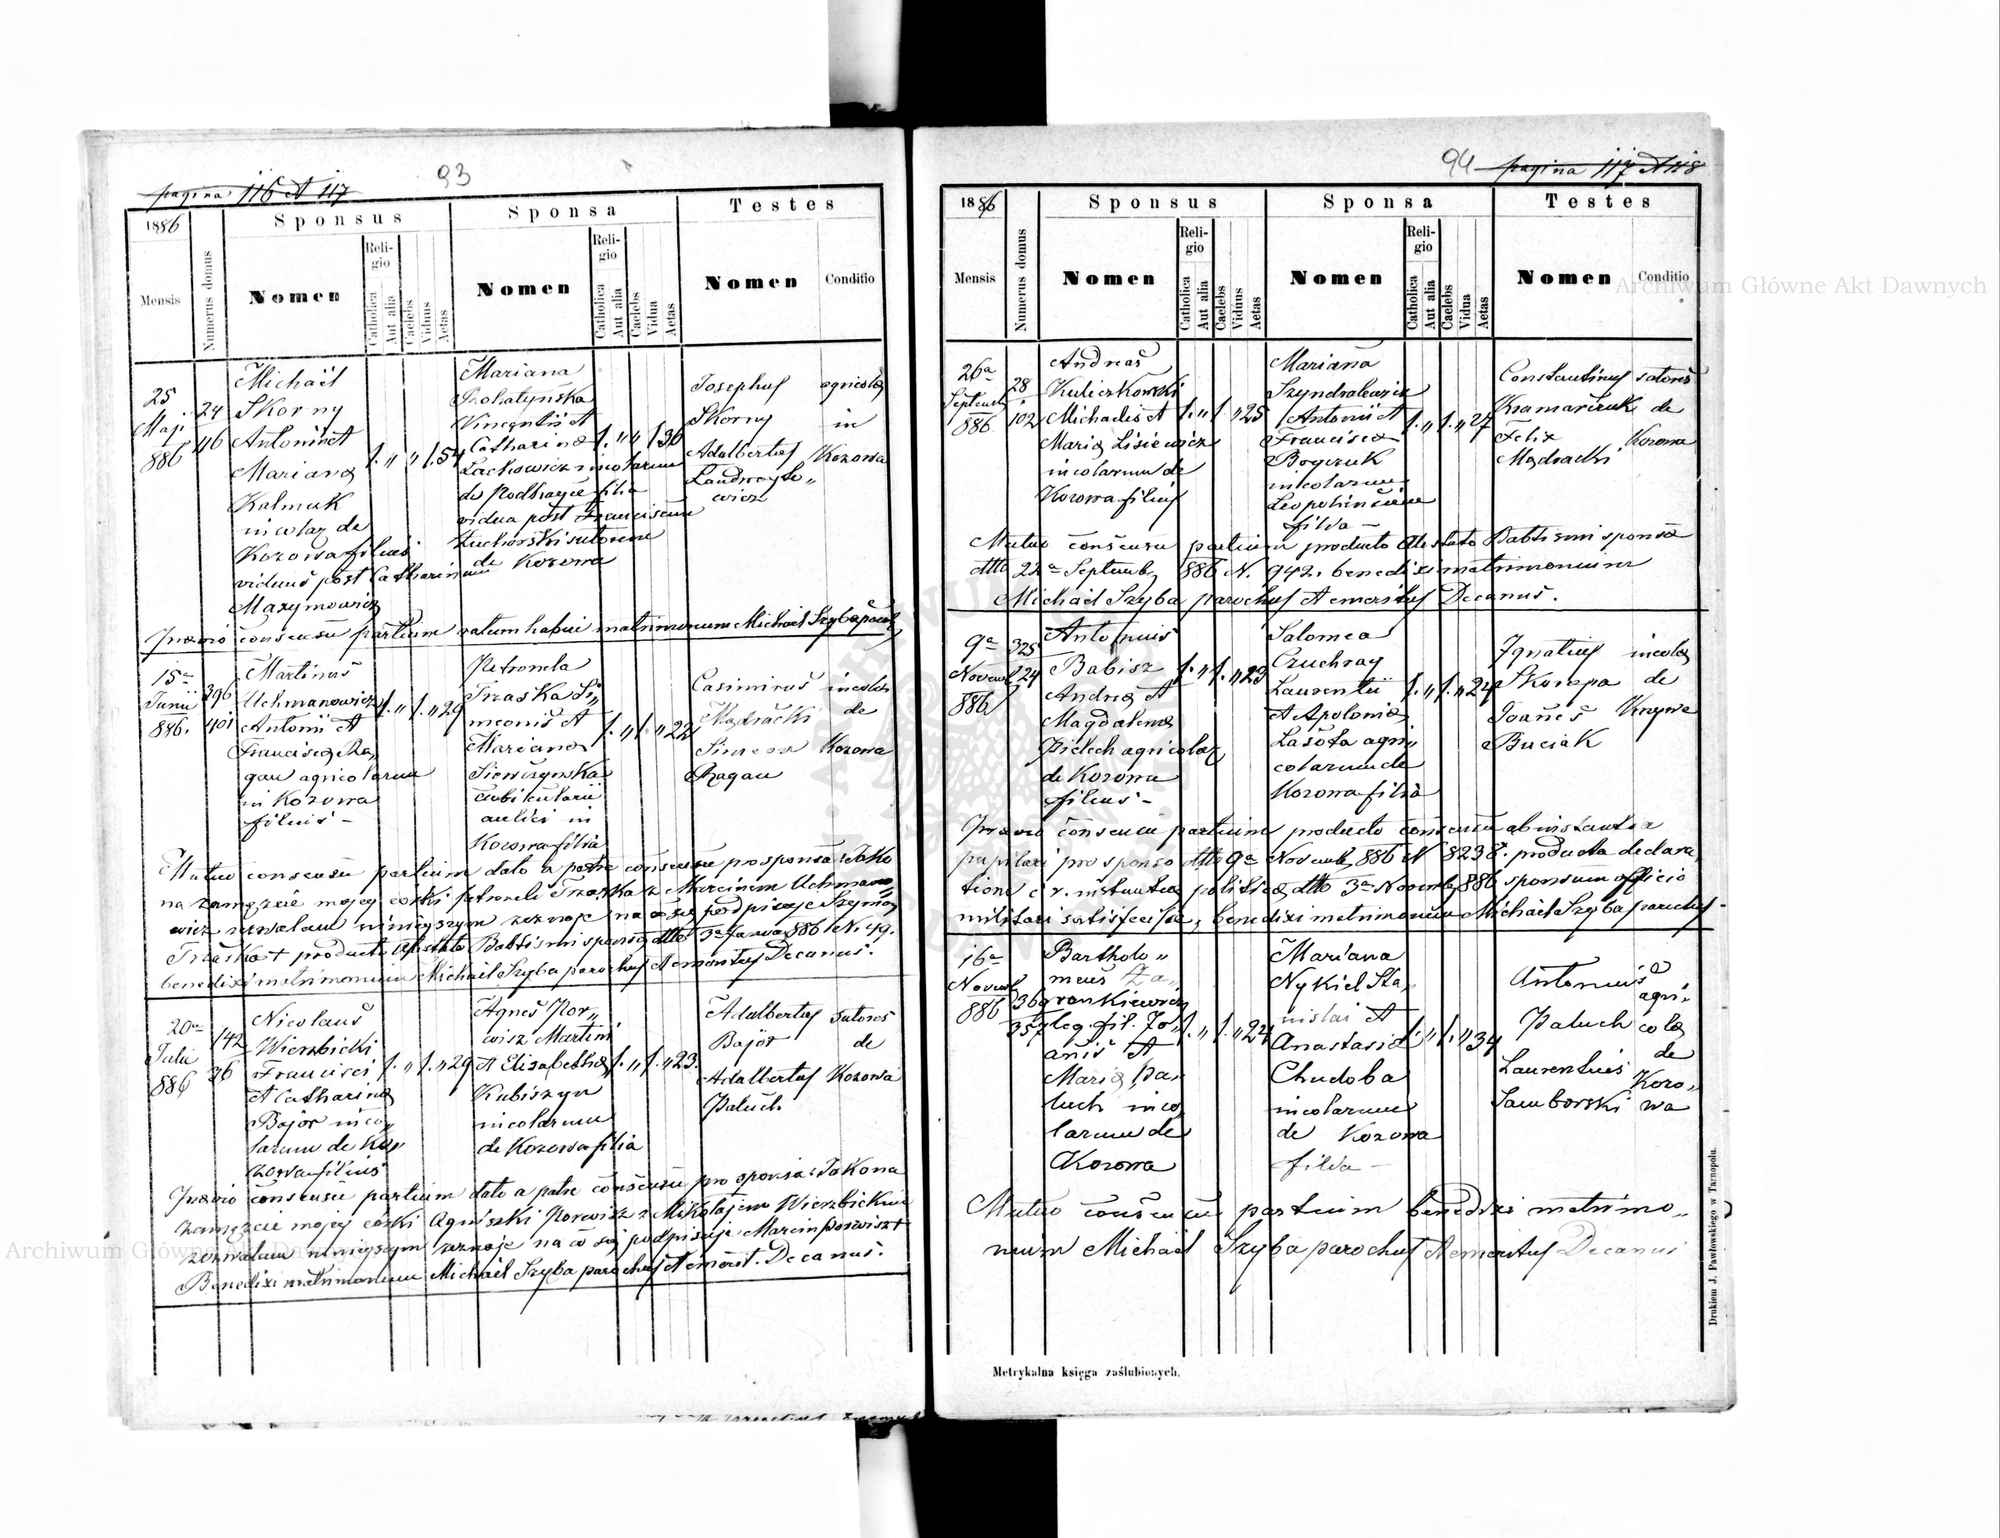 93
pagina 116 et 117
1886
Sponsus
Sponsa
Testes
Mensis
Numerus domus
Nomen
Religio
Catholica
Aut alia
Caelebs
Viduus
Aetas
Nomen
Religio
Catholica
Aut alia
Caelebs
Vidua
Aetas
Nomen
Conditio
25
Maji
886
24
46
Michaël
Skorny
Antonii et
Mariana
Kalmuk
incolaz de
Kozowa filius
viduus post Catharinam
Mazymowicz
1. " " 1. 54
Mariana
Rohatyńska
Vincentii et
Catharina
Lackowicz incolarum
de Podhayce filia
vidua post Franciscum
Zuchorski sutorem
de Kozowa
1. " " 1 36
Josephus agricola
Skorny in
Adalbertus Kozowa
Landwoyto"
wicz
Praevio consensu partium ratum habui matrimonium Michael Szyba paroch
15a
Junii
886.
396
401
Martinus
Uchmanowicz
Antonii et
Francisca Ra"
gan agricolarum
in Kozowa
filius -
1. " 1. " 29
Petronela
Traska Si"
meonis et
Mariana
Siewczyńska
cubicularii
aulici in
Kozowa filia
1. " 1. " 22
Casimirus incola
Mądracki de
Simeon Kozowa
Ragan
Mutuo consensu partium dato a patre consensu pro sponsa: Jako
na zamęzcie mojej córki Petroneli Traska z Marcinem Uchmano
wicz zezwalam niniejszym zeznaje na co się podpisuje Szymon
Traska + producto Atestato Babtismi sponsa dtto 3a Janua 886 N. 49.
benedixi matrimonium Michaël Szyba parochus et emeritus Decanus.
20a
Julii
886
142
36
Nicolaus
Wierzbicki
Francisci
et Catharina
Bajor inco"
larum de Ko"
zowa filius
1. " 1. " 29
Agnes Por"
wisz Martini
et Elisabetha
Kubiszyn
incolarum
de Kozowa filia
1. " 1. " 23.
Adalbertus sutores
Bajór de
Adalbertus Kozowa
Paluch
Praevio consensu partium dato a patre consensu pro sponsa: Jako na
zamęzcie mojej córki Agnieszki Porewisz z Mikołajem Wierzbickim
zezwalam niniejszym zeznaje na co się podpisuje Marcin Porwisz +
Benedixi matrimonium Michaël Szyba parochus et emerit. Decanus.
94
pagina 117 et 118
1886
Sponsus
Sponsa
Testes
Mensis
Numerus domus
Nomen
Religio
Catholica
Aut alia
Caelebs
Viduus
Aetas
Nomen
Religio
Catholica
Aut alia
Caelebs
Vidua
Aetas
Nomen
Conditio
26a
Septemb
886
28
102
Andreas
Kuliczkowski
Michaelis et
Maria Lisiewicz
incolarum de
Kozowa filius
1. " 1. " 25
Mariana
Szyndralewicz
Antonii et
Francisca
Boyczuk
incolarum
filia -
1. " 1. " 27
Constantinus sutores
Kramarczuk de
Felix Kozowa
Mądracki
Mutuo consensu partium producto Atestato Babtismi sponsa
dtto 22a Septemb 886 N. 942. benedixi matrimonium
Michaël Szyba parochus et emeritus Decanus.
9a
Novemb
886
325
224
Antonius
Babisz
Andrea et
Magdalena
Pielech agricolaz
de Kozowa
filius -
1. " 1. " 23
Salomea
Czuchray
Laurentii
et Apolonia
Lasota agri"
colarum de
Kozowa filia
1. " 1. " 24
Ignatius incola
Skorupa de
Joanes Krzywe
Buciak
Praevio consensu partium producto consensu ab instantia
pupilari pro sponso dtto 9a Novemb 886 N 8238. producta declara
tione c. r. instantia politica dtto 3a Novemb 886 sponsum officio
militari satisfecisse, benedixi matrimonium Michaël Szyba parochus -
16a
Novemb
886
369
357
Bartholo"
meus Za"
wronkiewicz
leg. fil. Jo"
anis et
Maria Pa"
luch inco
larum de
Kozowa
1. " 1. " 24
Mariana
Nykiel Sta"
nislai et
Anastasia
Chudoba
incolarum
de Kozowa
filia -
1. " 1. " 34
Antonius agri"
Paluch cola
Laurentius de
Samborski Kozo"
wa
Mutuo consensu partium benedixi matrimo"
nium Michaël Szyba parochus et emeritus Decanus
Metrykalna księga zaślubionych.
Drukiem J. Pawłowskiego w Tarnopolu.
Archiwum Główne Akt Dawnych
Archiwum Główne Akt Dawnych